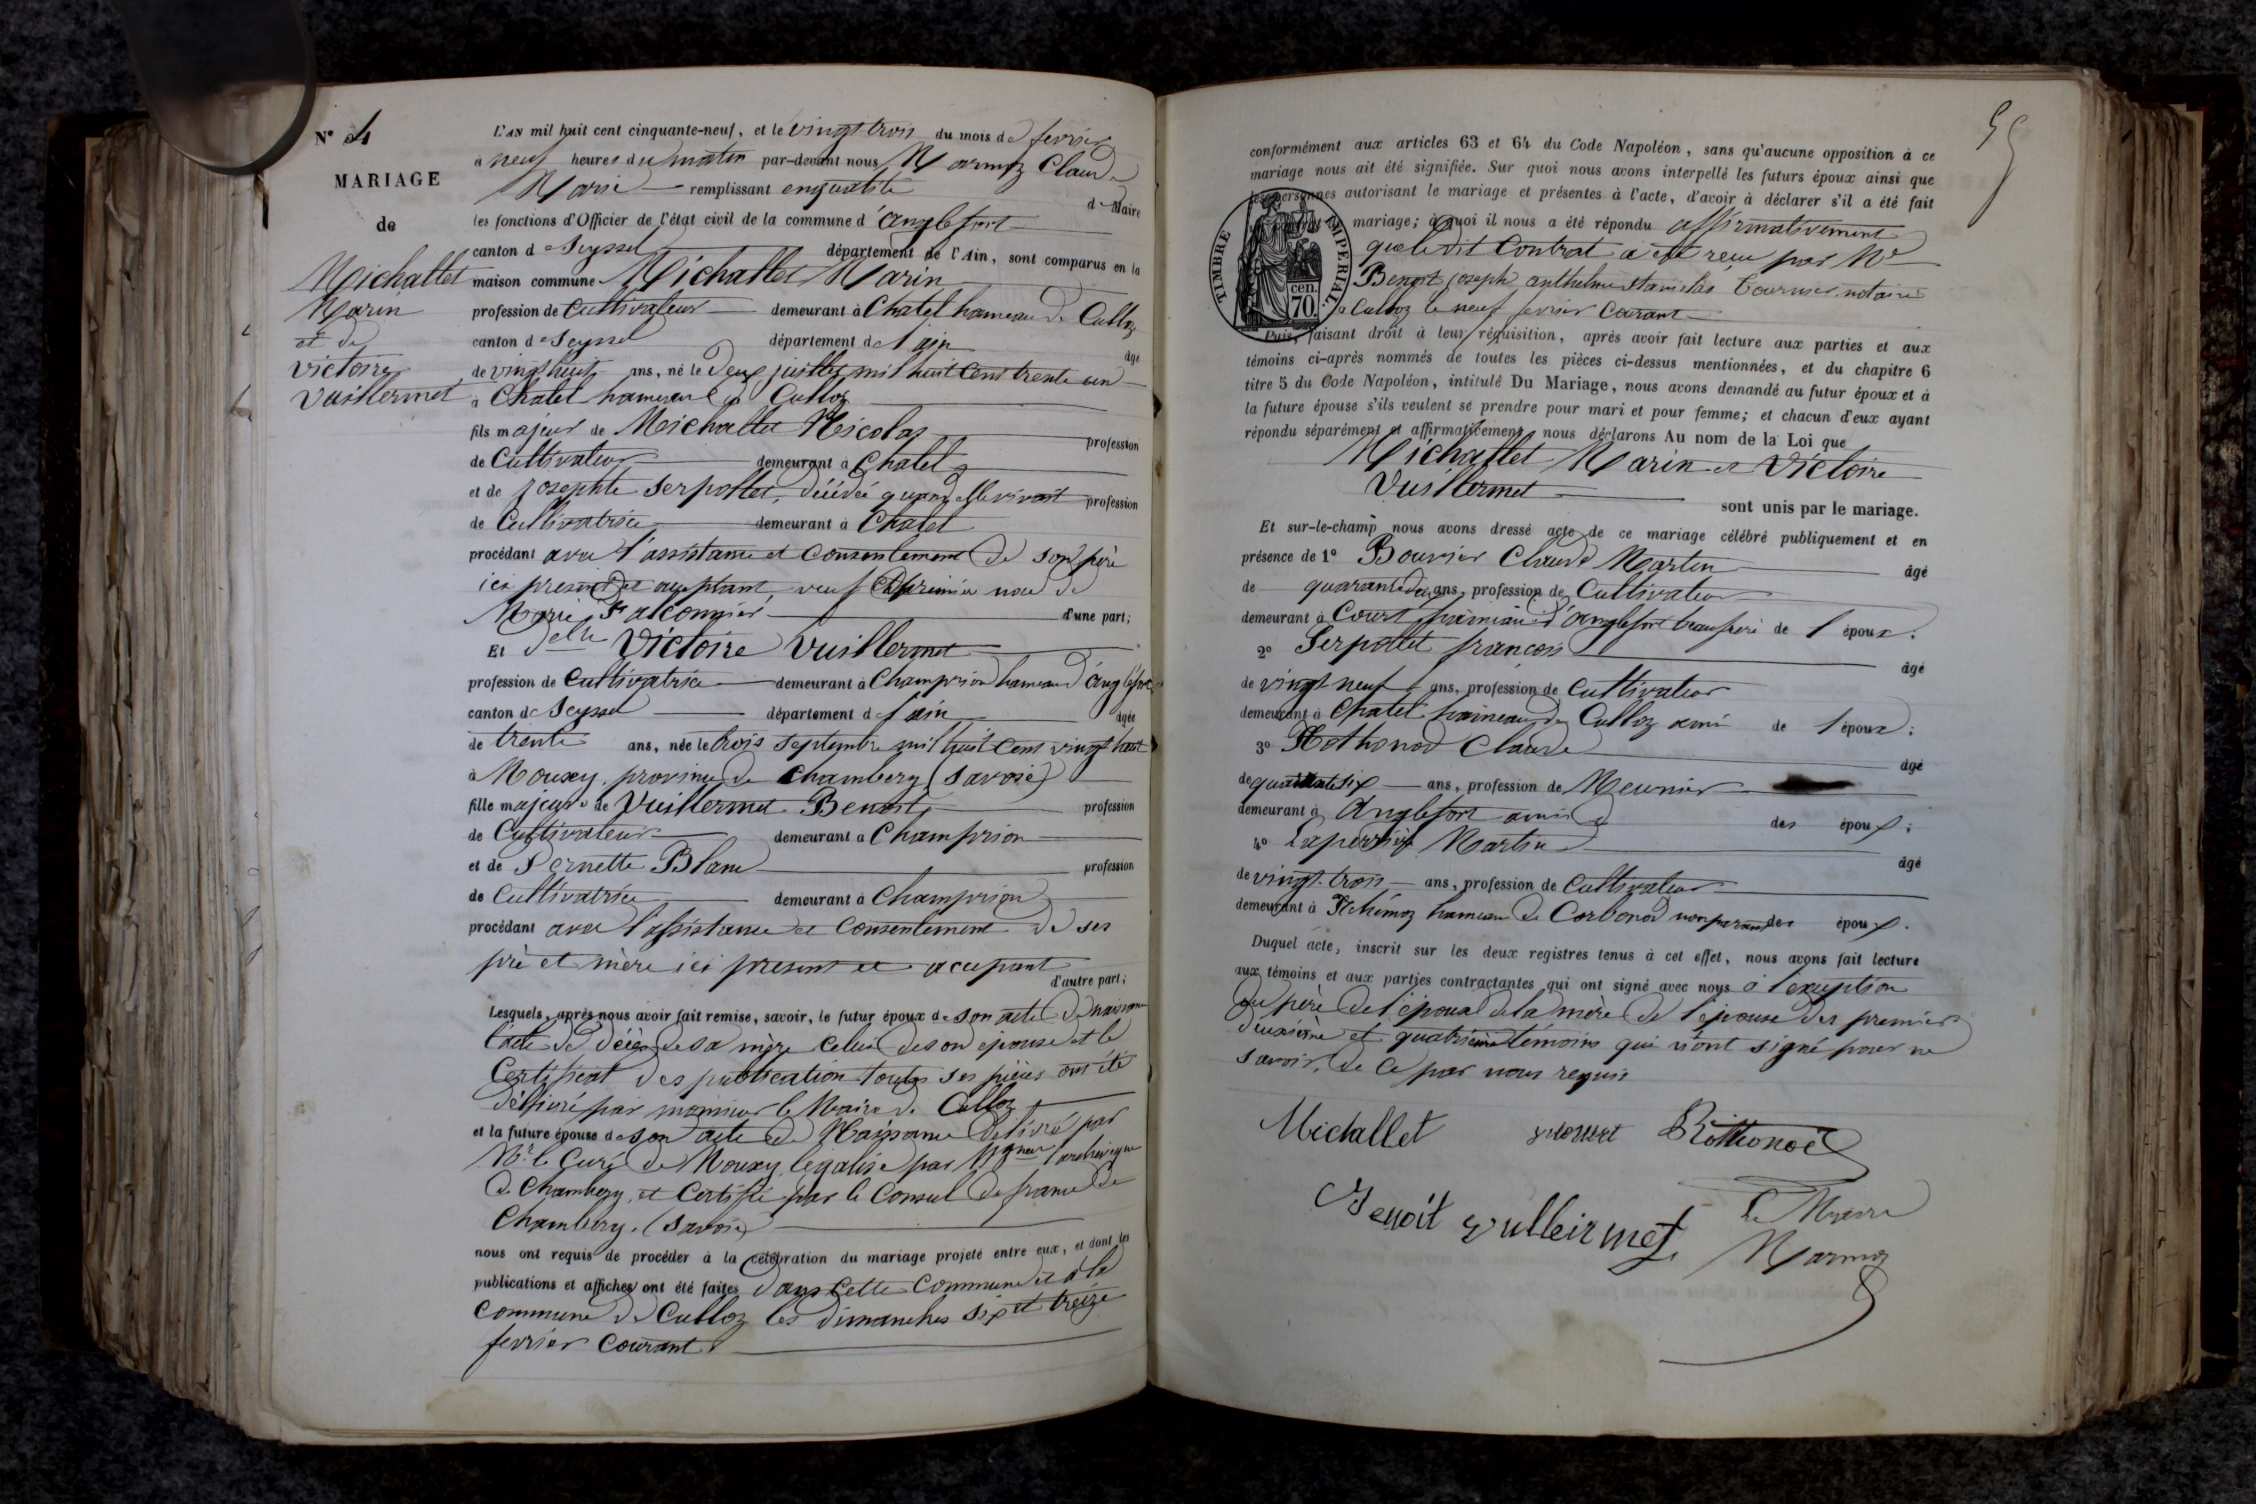 N° 4
MARIAGE
de
Michallet
Marin
et de
Victoire
Vuillermet
L'AN mil huit cent cinquante-neuf, et le vingt trois du mois de fevrier
à neuf heures du matin par-devant nous Marmoz Claude
Marie remplissant en qualité de Maire
les fonctions d'Officier de l'état civil de la commune d'anglefort
canton de Seyssel département de l'Ain, sont comparus en la
maison commune Michallet Marin
profession de Cultivateur demeurant à Chatel hameau de Culloz
canton de Seyssel département de l'ain âgé
de vingt huit ans, né le deux juillet mil huit cent trente un
à Chatel hameau de Culloz
fils majeur de Michallet Nicolas profession
de Cultivateur demeurant à Chatel
et de josephte Serpollet, décédée quand elle vivait profession
de Cultivatrice demeurant à Chatel
procédant avec l'assistance et consentement de son père
ici present et acceptant, veuf en première noce de
Marie Falconnier d'une part;
Et Delle Victoire Vuillermet
profession de Cultivatrice demeurant à Champrion hameau d'anglefort
canton de Seyssel département de l'ain âgée
de trente ans, née le trois septembre mil huit cent vingt huit
à Mouxy province de Chambery (Savoie)
fille majeure de Vuillermet Benoit profession
de Cultivateur demeurant à Champrion
et de Pernette Blanc profession
de Cultivatrice demeurant à Champrion
procédant avec l'assistance et consentement de ses
père et mère ici present et acceptant d'autre part;
Lesquels, après nous avoir fait remise, savoir, le futur époux de son acte de naissance
l'acte de décès de sa mère celui de son épouse et le
Certificat des publication toutes ses pièces ont été
délivré par monsieur le Maire de Culloz
et la future épouse de son acte de Naissance délivré par
Mr le Curé de Mouxy légalisé par Mgneur l'archevêque
de Chambery, et Certifié par le Consul de france de
Chambery. (Savoie)
nous ont requis de procéder à la célébration du mariage projeté entre eux, et dont les
publications et affiches ont été faites dans cette Commune et à la
Commune de Culloz les dimanches six et treize
fevrier Courant
conformément aux articles 63 et 64 du Code Napoléon, sans qu'aucune opposition à ce
mariage nous ait été signifiée. Sur quoi nous avons interpellé les futurs époux ainsi que
les personnes autorisant le mariage et présentes à l'acte, d'avoir à déclarer s'il a été fait
mariage; à quoi il nous a été répondu affirmativement
que le dit Contrat a été reçu par Me
Benoit joseph anthelme stanislas Tournier notaire
à Culloz le neuf fevrier Courant
TIMBRE IMPERIAL.
70 cen.
Puis, faisant droit à leur réquisition, après avoir fait lecture aux parties et aux
témoins ci-après nommés de toutes les pièces ci-dessus mentionnées, et du chapitre 6
titre 5 du Code Napoléon, intitulé Du Mariage, nous avons demandé au futur époux et à
la future épouse s'ils veulent se prendre pour mari et pour femme; et chacun d'eux ayant
répondu séparément et affirmativement, nous déclarons Au nom de la Loi que
Michallet Marin et Victoire
Vuillermet sont unis par le mariage.
Et sur-le-champ nous avons dressé acte de ce mariage célébré publiquement et en
présence de 1° Bouvier Claude Martin âgé
de quarante ans, profession de Cultivateur
demeurant à Court hameau d'anglefort beaufrère de l'époux.
2° Serpollet françois âgé
de vingt neuf ans, profession de Cultivateur
demeurant à Chatel hameau de Culloz ami de l'époux;
3° Rothonod Claude âgé
de quarante six ans, profession de Meunier
demeurant à Anglefort amis des époux;
4° Martin âgé
de vingt-trois ans, profession de Cultivateur
demeurant à hameau de Corbonod non parent des époux.
Duquel acte, inscrit sur les deux registres tenus à cet effet, nous avons fait lecture
aux témoins et aux parties contractantes qui ont signé avec nous à l'exception
du père de l'époux de la mère de l'épouse des premier
deuxième et quatrième témoins qui n'ont signé pour ne
savoir, de ce par nous requis
Michallet Rothonod
Benoit vulleirmet
le Maire
Marmoz